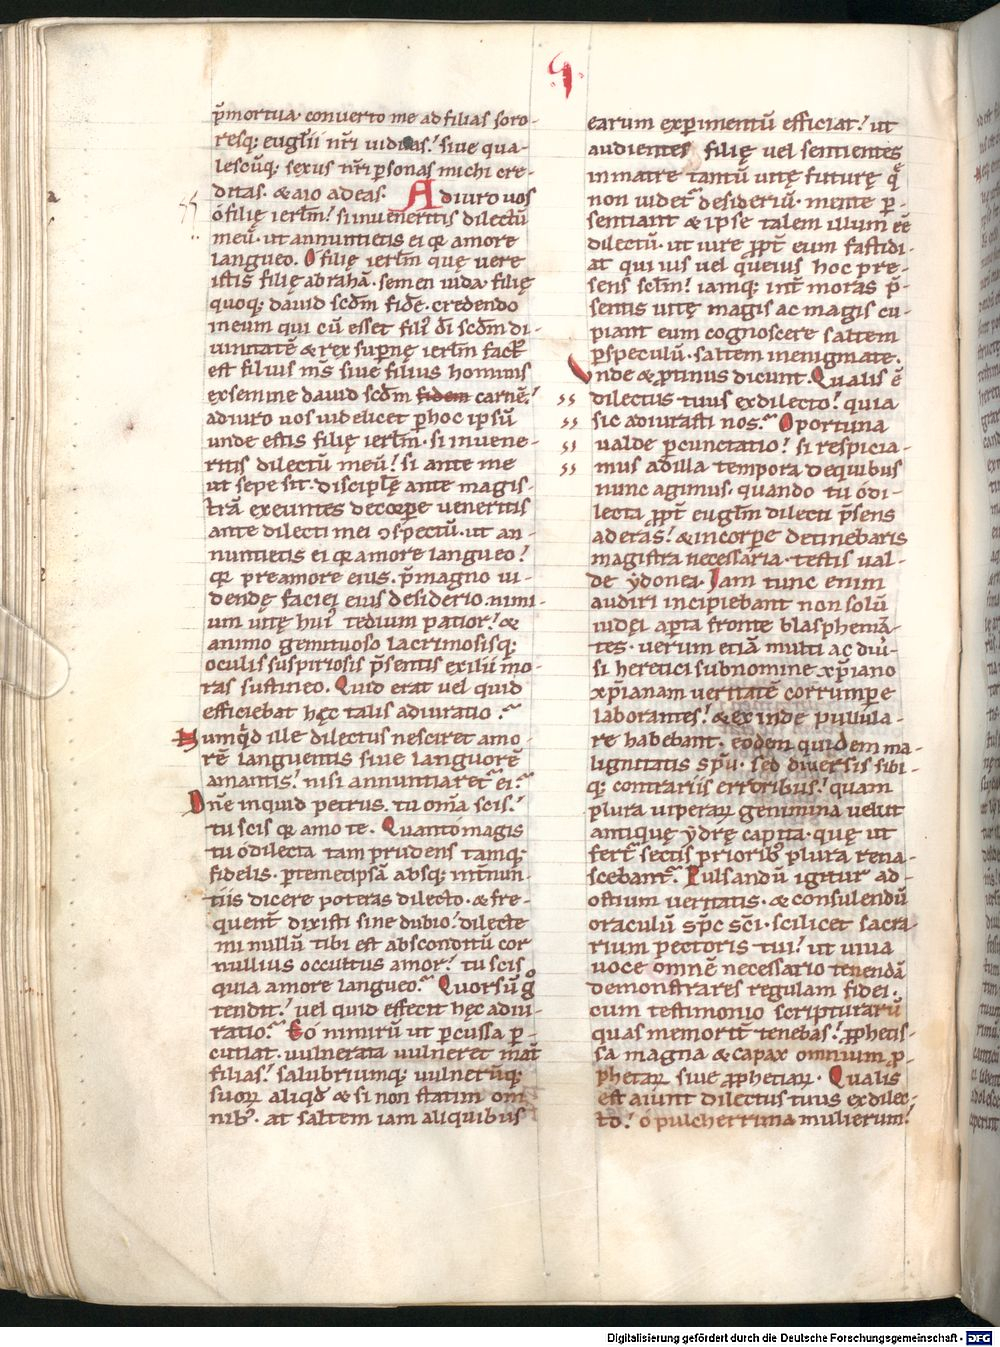 ꝗ.
p̄mortua· conuerto me ad filias soro-
resq; euglii nr̄i uiduas! siue qua-
lescūq; sexus nr̄i ꝑsonas michi cre-
ditas· & aio ad eas. Adiuro uos
o filię ierlm̄! si inueneritis dilectū
meū· ut annuntietis ei qꝛ amore
langueo. O filię ierlm̄ quę uere
istis filię abrahā· semen uida· filię
quoq; dauid scdm̄ fidē· credendo
in eum qui cū esset filiꝰ di scdm̄ di-
uinitatē & rex supernę ierlm̄ factꝰ
est filius ms̄ siue filius hominis
ex semine dauid scdm̄ fidem carnē!
adiuro uos uidelicet ꝑ hoc ipsū
unde estis filię ierlm̄· si inuene-
ritis dilectū meū! si ante me
ut sepe sit· disciplę ante magis-
trā exeuntes de corpe ueneritis
ante dilecti mei ɔspectū· ut an-
nuntietis ei qꝛ amore langueo!
qꝛ pre amore eius· p̄ magno ui-
dendę faciei eius desiderio· nimi-
um uitę huiꝰ tedium patior! &
animo gemituoso lacrimosisq;
oculis suspiriosis p̄sentis exilii mo-
ras sustineo. Quid erat uel quid
efficiebat hęc talis adiuratio?
Numqd ille dilectus nesciret amo-
rē languentis siue languorē
amantis! nisi annuntiaret ei?
Dn̄e inquid petrus· tu om̄a scis!
tu scis qꝛ amo te. Quanto magis
tu o dilecta tam prudens tamq;
fidelis· ꝑ temetipsā absq; int̄nun-
tiis dicere poteras dilecto· & fre-
quent̄ dixisti sine dubio! dilecte
mi nullū tibi est absconditū cor
nullius occultus amor! tu scis
quia amore langueo? Quorsū g̊
tendit! uel quid effecit hęc adiu-
ratio? Eo nimirū ut percussa ꝑ-
cutiat· uulnerata uulneret mat̄
filias! salubriumq; uulnerūq;
suoꝝ aliqd & si non statim om-
nibꝰ· at saltem iam aliquibus
earum exꝑimentū efficiat! ut
audientes filię uel sentientes
in matre tantū uitę futurę q̄
non uidet̄ desideriū· mente ꝑ-
sentiant & ipse talem illum eē
dilectū· ut iure ꝓpt̄ eum fastidi-
at qui uis uel queuis hoc pre-
sens sclm̄! iamq; int̄ moras p̄-
sentis uitę magis ac magis cu-
piant eum cognoscere saltem
ꝑ speculū· saltem in enigmate.
Vnde & ꝓtinus dicunt. Qualis ē
dilectus tuus ex dilecto! quia
sic adiurasti nos? Oportuna
ualde ꝑcunctatio! si respicia-
mus ad illa tempora de quibus
nunc agimus· quando tu o di-
lecta ꝓpt̄ euglm̄ dilecti p̄sens
aderas! & in corpe detinebaris
magistra necessaria· testis ual-
de ydonea. Iam tunc enim
audiri incipiebant non solū
iudei aꝑta fronte blasphemā-
tes· uerum etiā multi ac diuī-
si heretici sub nomine xp̄iano
xp̄ianam ueritatē corrumpe
laborantes! & exinde pullula-
re habebant· eodem quidem ma-
lignitatis spū· sed diuersis sibi-
q; contrariis erroribus! quam
plura uiperaꝝ genimina uelut
antiquę ydrę capita· quę ut
fert̄ sectis prioribꝰ plura rena-
scebant̄. Pulsandū igitur ad
ostium ueritatis· & consulendū
oraculū spc sci· scilicet sacra-
rium pectoris tui! ut uiua
uoce omnē necessario tenendā
demonstrares regulam fidei·
cum testimonio scripturarū
quas memorit̄ tenebas! ꝓphetis-
sa magna & capax omnium ꝓ-
phetaꝝ siue ꝓphetiaꝝ· Qualis
est aiunt dilectus tuus ex dilec-
to! o pulcherrima mulierum!
Digitalisierung gefördert durch die Deutsche Forschungsgemeinschaft - DFG